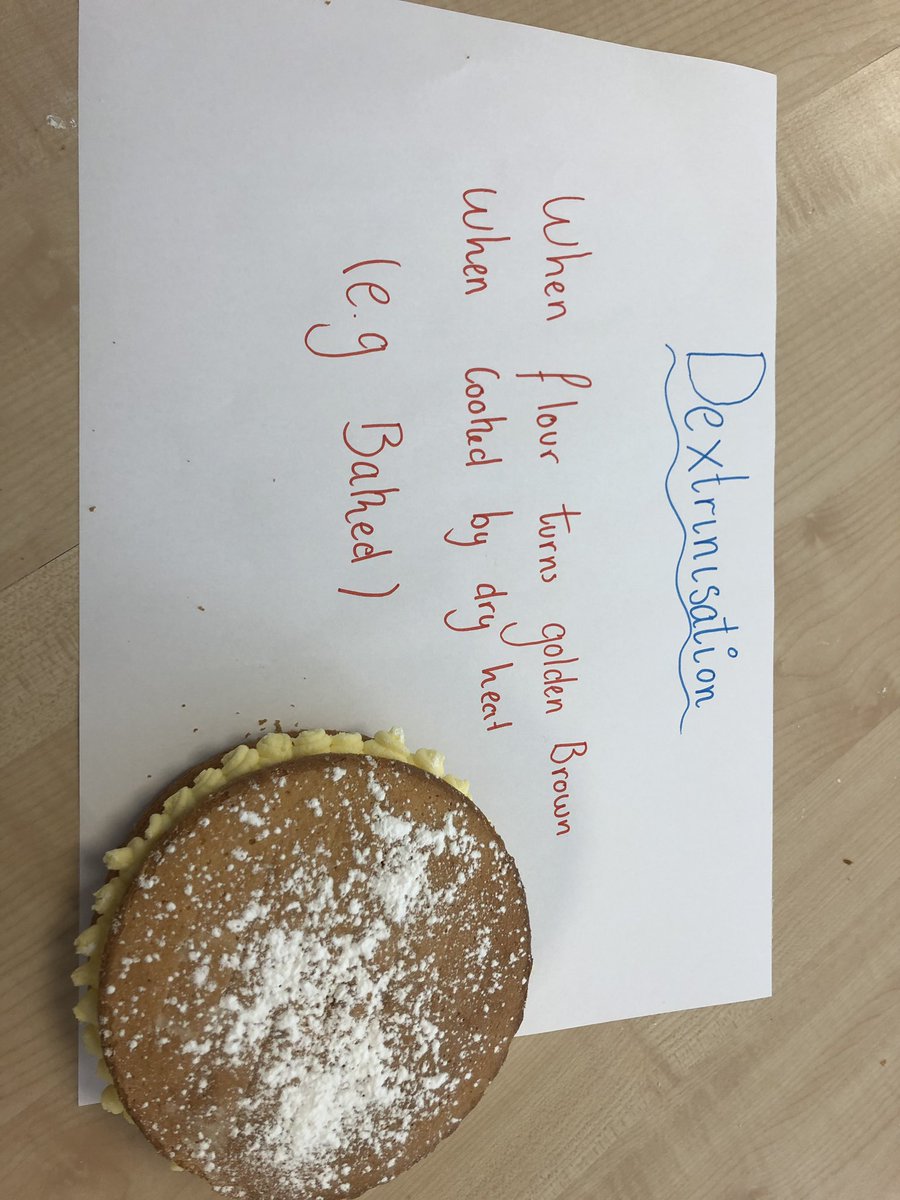 Dextrinisation
When flour turns golden Brown
When Cooked by dry heat
(e.g Baked)